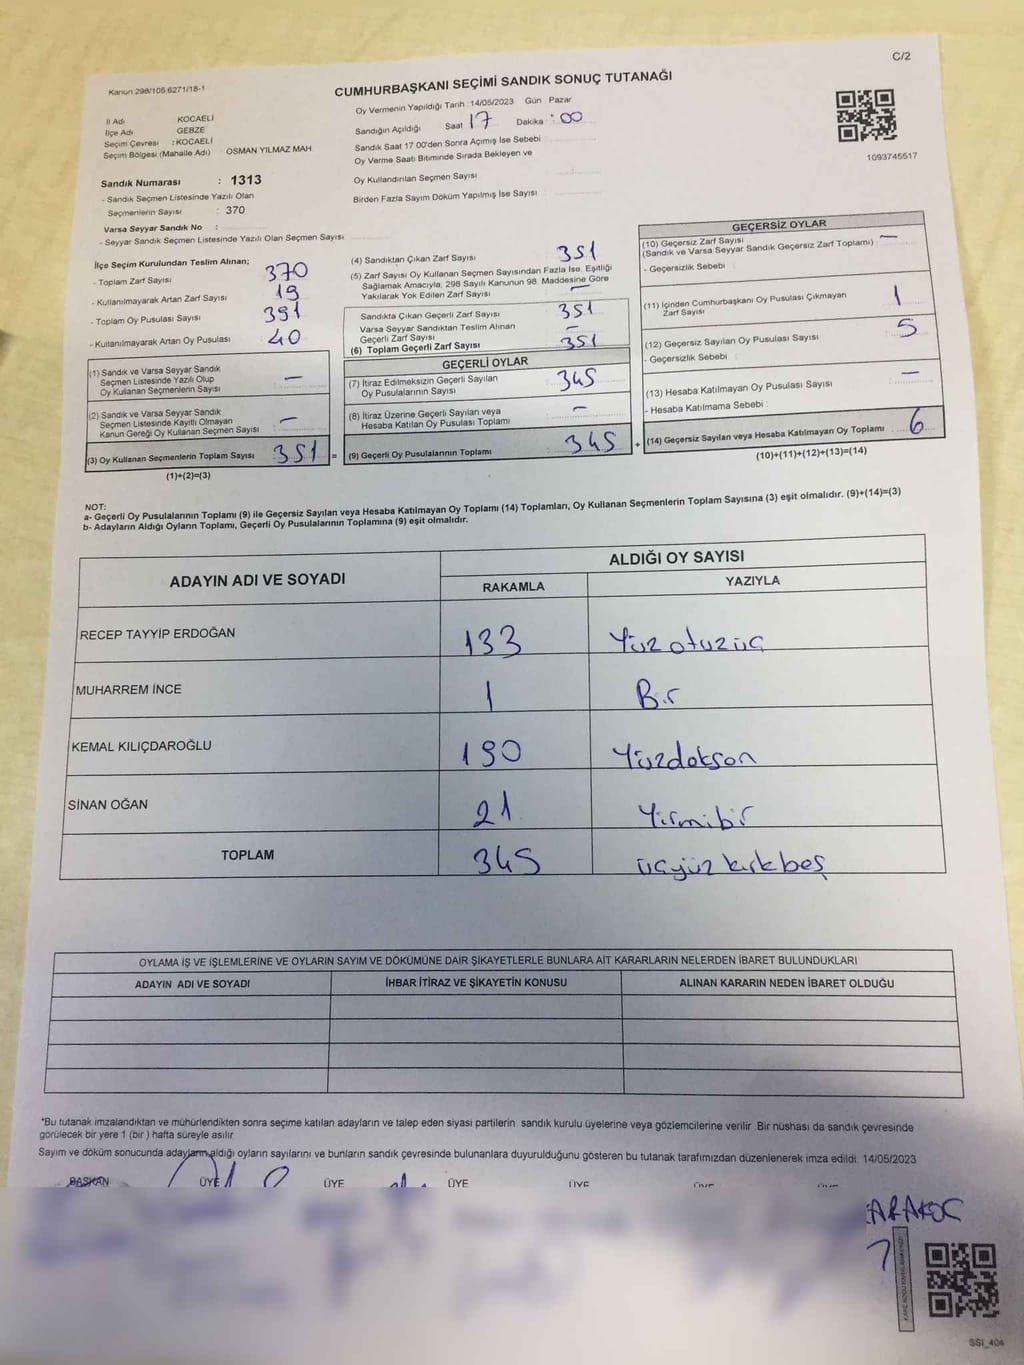 C/2
Kanun 298/105,6271/18-1
CUMHURBAŞKANI SEÇİMİ SANDIK SONUÇ TUTANAĞI
Oy Vermenin Yapıldığı Tarih :14/05/2023 Gün : Pazar
Sandığın Açıldığı Saat 17 Dakika : 00
Sandık Saat 17 00'den Sonra Açımış İse Sebebi
Oy Verme Saati Bitiminde Sırada Bekleyen ve
Oy Kullandırılan Seçmen Sayısı
Birden Fazla Sayım Döküm Yapılmış İse Sayısı
1093745517
İl Adı KOCAELİ
İlçe Adı GEBZE
Seçim Çevresi : KOCAELİ
Seçim Bölgesi (Mahalle Adı) OSMAN YILMAZ MAH
Sandık Numarası : 1313
- Sandık Seçmen Listesinde Yazılı Olan
Seçmenlerin Sayısı : 370
Varsa Seyyar Sandık No :
- Seyyar Sandık Seçmen Listesinde Yazılı Olan Seçmen Sayısı
İlçe Seçim Kurulundan Teslim Alınan;
- Toplam Zarf Sayısı 370
- Kullanılmayarak Artan Zarf Sayısı 19
- Toplam Oy Pusulası Sayısı 391
- Kullanılmayarak Artan Oy Pusulası 40
(1) Sandık ve Varsa Seyyar Sandık
Seçmen Listesinde Yazılı Olup
Oy Kullanan Seçmenlerin Sayısı –
(2) Sandık ve Varsa Seyyar Sandık
Seçmen Listesinde Kayıtlı Olmayan
Kanun Gereği Oy Kullanan Seçmen Sayısı –
(3) Oy Kullanan Seçmenlerin Toplam Sayısı : 351 =
(1)+(2)=(3)
(4) Sandıktan Çıkan Zarf Sayısı 351
(5) Zarf Sayısı Oy Kullanan Seçmen Sayısından Fazla İse, Eşitliği
Sağlamak Amacıyla, 298 Sayılı Kanunun 98. Maddesine Göre
Yakılarak Yok Edilen Zarf Sayısı –
Sandıkta Çıkan Geçerli Zarf Sayısı 351
Varsa Seyyar Sandıktan Teslim Alınan
Geçerli Zarf Sayısı –
(6) Toplam Geçerli Zarf Sayısı 351
GEÇERLİ OYLAR
(7) İtiraz Edilmeksizin Geçerli Sayılan
Oy Pusulalarının Sayısı 345
(8) İtiraz Üzerine Geçerli Sayılan veya
Hesaba Katılan Oy Pusulası Toplamı –
(9) Geçerli Oy Pusulalarının Toplamı : 345 +
GEÇERSİZ OYLAR
(10) Geçersiz Zarf Sayısı
(Sandık ve Varsa Seyyar Sandık Geçersiz Zarf Toplamı) –
- Geçersizlik Sebebi
(11) İçinden Cumhurbaşkanı Oy Pusulası Çıkmayan
Zarf Sayısı 1
(12) Geçersiz Sayılan Oy Pusulası Sayısı 5
- Geçersizlik Sebebi :
(13) Hesaba Katılmayan Oy Pusulası Sayısı –
- Hesaba Katılmama Sebebi :
(14) Geçersiz Sayılan veya Hesaba Katılmayan Oy Toplamı : 6
(10)+(11)+(12)+(13)=(14)
NOT:
a- Geçerli Oy Pusulalarının Toplamı (9) ile Geçersiz Sayılan veya Hesaba Katılmayan Oy Toplamı (14) Toplamları, Oy Kullanan Seçmenlerin Toplam Sayısına (3) eşit olmalıdır. (9)+(14)=(3)
b- Adayların Aldığı Oyların Toplamı, Geçerli Oy Pusulalarının Toplamına (9) eşit olmalıdır.
ADAYIN ADI VE SOYADI
ALDIĞI OY SAYISI
RAKAMLA YAZIYLA
RECEP TAYYİP ERDOĞAN 133 Yüzotuzüç
MUHARREM İNCE 1 Bir
KEMAL KILIÇDAROĞLU 190 Yüzdokson
SİNAN OĞAN 21 Yirmibir
TOPLAM 345 üçyüz kırkbeş
OYLAMA İŞ VE İŞLEMLERİNE VE OYLARIN SAYIM VE DÖKÜMÜNE DAİR ŞİKAYETLERLE BUNLARA AİT KARARLARIN NELERDEN İBARET BULUNDUKLARI
ADAYIN ADI VE SOYADI İHBAR İTİRAZ VE ŞİKAYETİN KONUSU ALINAN KARARIN NEDEN İBARET OLDUĞU
*Bu tutanak imzalandıktan ve mühürlendikten sonra seçime katılan adayların ve talep eden siyasi partilerin sandık kurulu üyelerine veya gözlemcilerine verilir. Bir nüshası da sandık çevresinde
görülecek bir yere 1 (bir ) hafta süreyle asılır
Sayım ve döküm sonucunda adayların aldığı oyların sayılarını ve bunların sandık çevresinde bulunanlara duyurulduğunu gösteren bu tutanak tarafımızdan düzenlenerek imza edildi. 14/05/2023
BAŞKAN ÜYE ÜYE ÜYE ÜYE
SSI_404